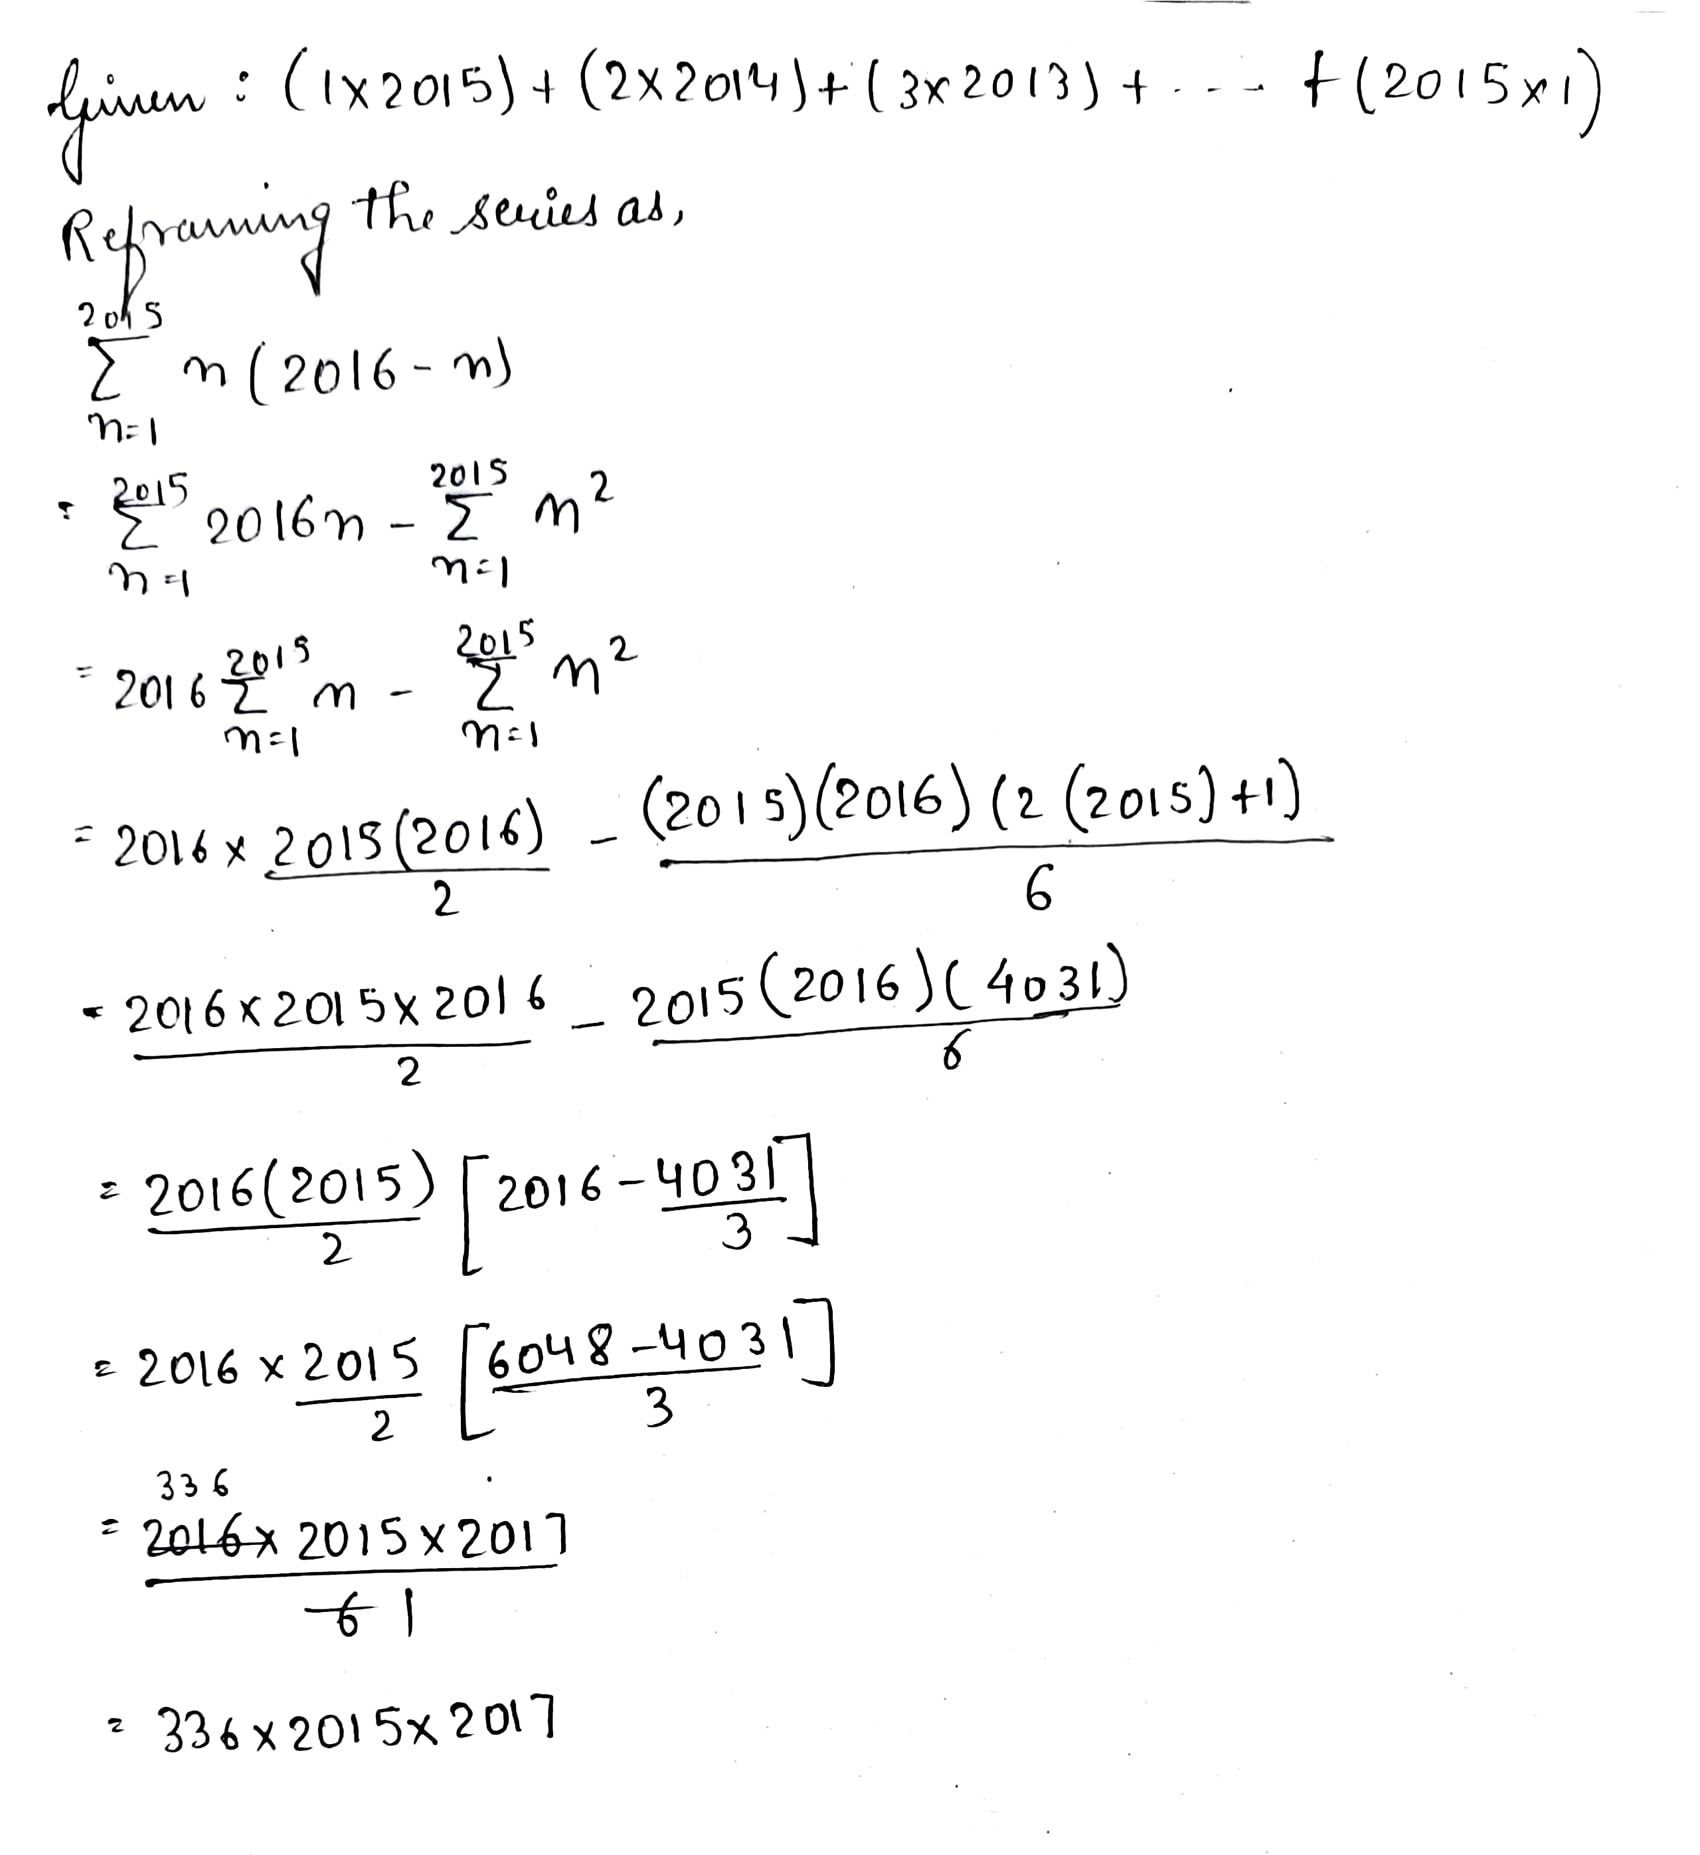 Given : (1x2015) + (2x2014) + (3x2013) + ---- + (2015x1)
Reframing the series as,
2015
Σ n(2016-n)
n=1
= 2015Σn=1 2016n - 2015Σn=1 n²
= 2016 2015Σn=1 n - 2015Σn=1 n²
= 2016 x 2015(2016)/2 - (2015)(2016)(2(2015)+1)/6
= 2016x2015x2016/2 - 2015(2016)(4031)/6
= 2016(2015)/2 [2016-4031/3]
= 2016 x 2015/2 [6048-4031/3]
336
= 2016x 2015x2017
6 1
= 336x2015x2017